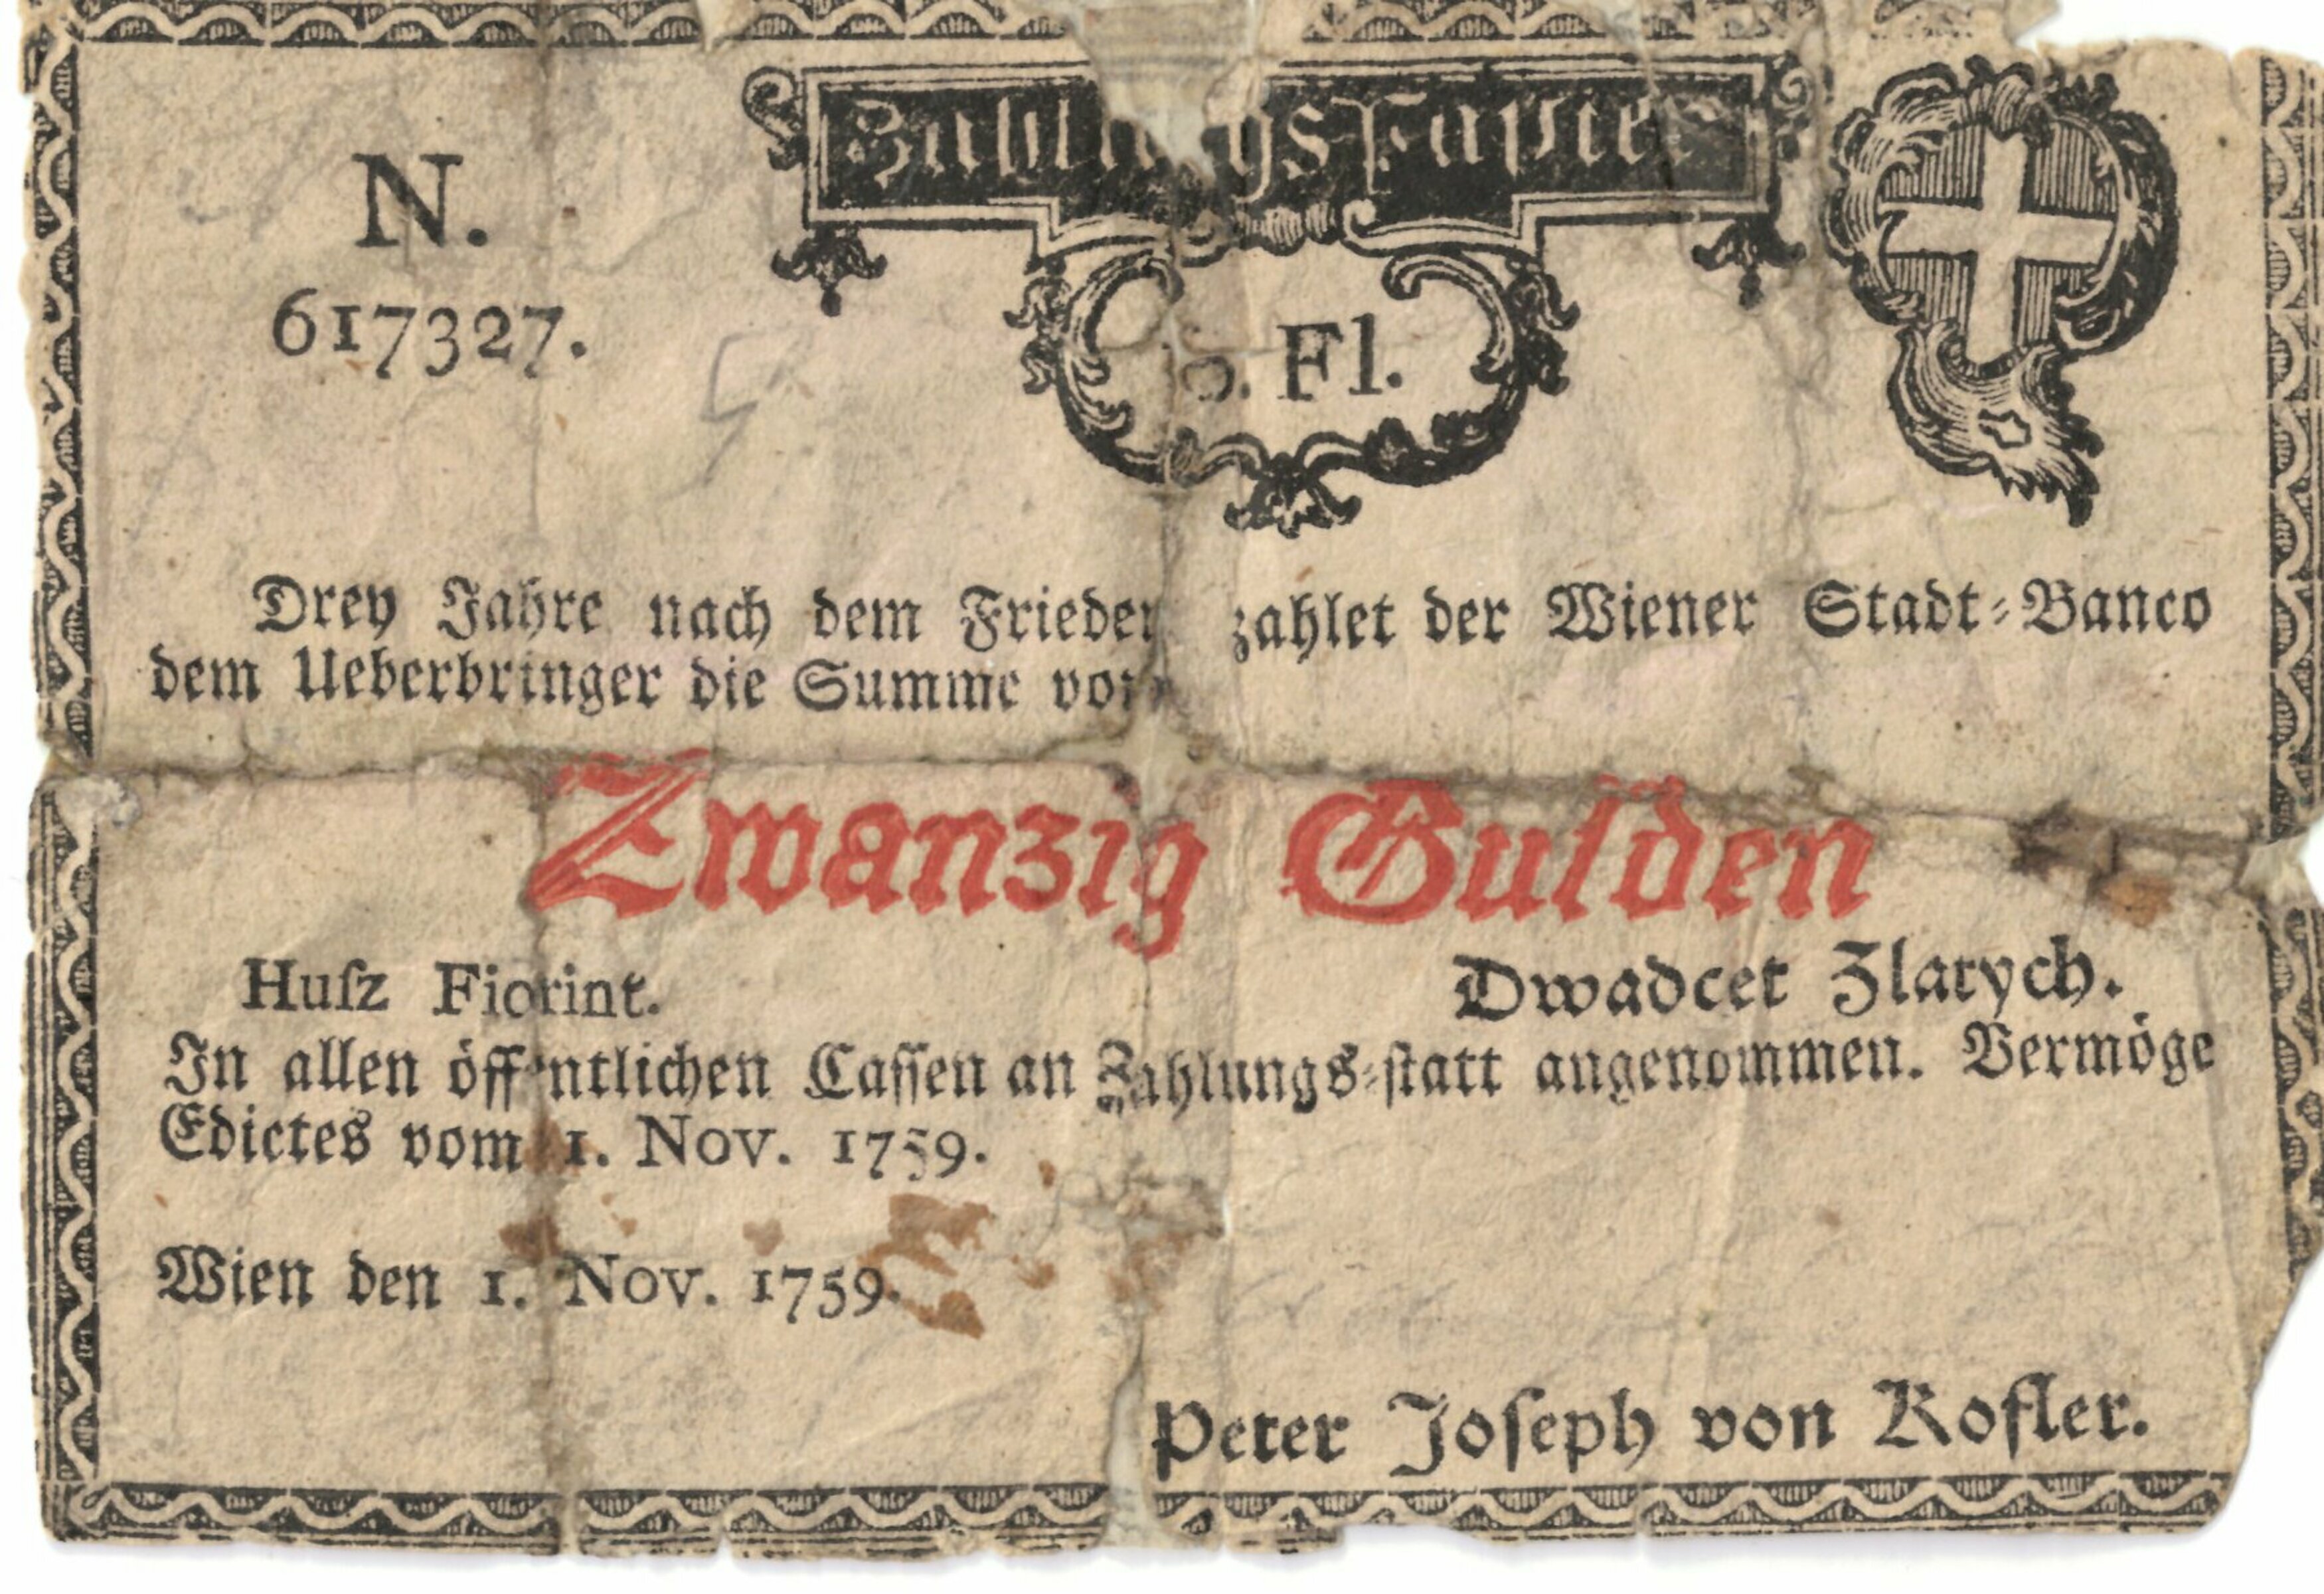 ZahlungsPapier
N.
617327.
Fl.
Drey Jahre nach dem Frieden zahlet der Wiener Stadt-Banco
dem Ueberbringer die Summe von
Zwanzig Gulden
Huſz Fiorint.
Dwadcet Zlatych.
In allen öffentlichen Caſſen an Zahlungs-ſtatt angenommen. Vermöge
Edictes vom 1. Nov. 1759.
Wien den 1. Nov. 1759.
Peter Joſeph von Kofler.